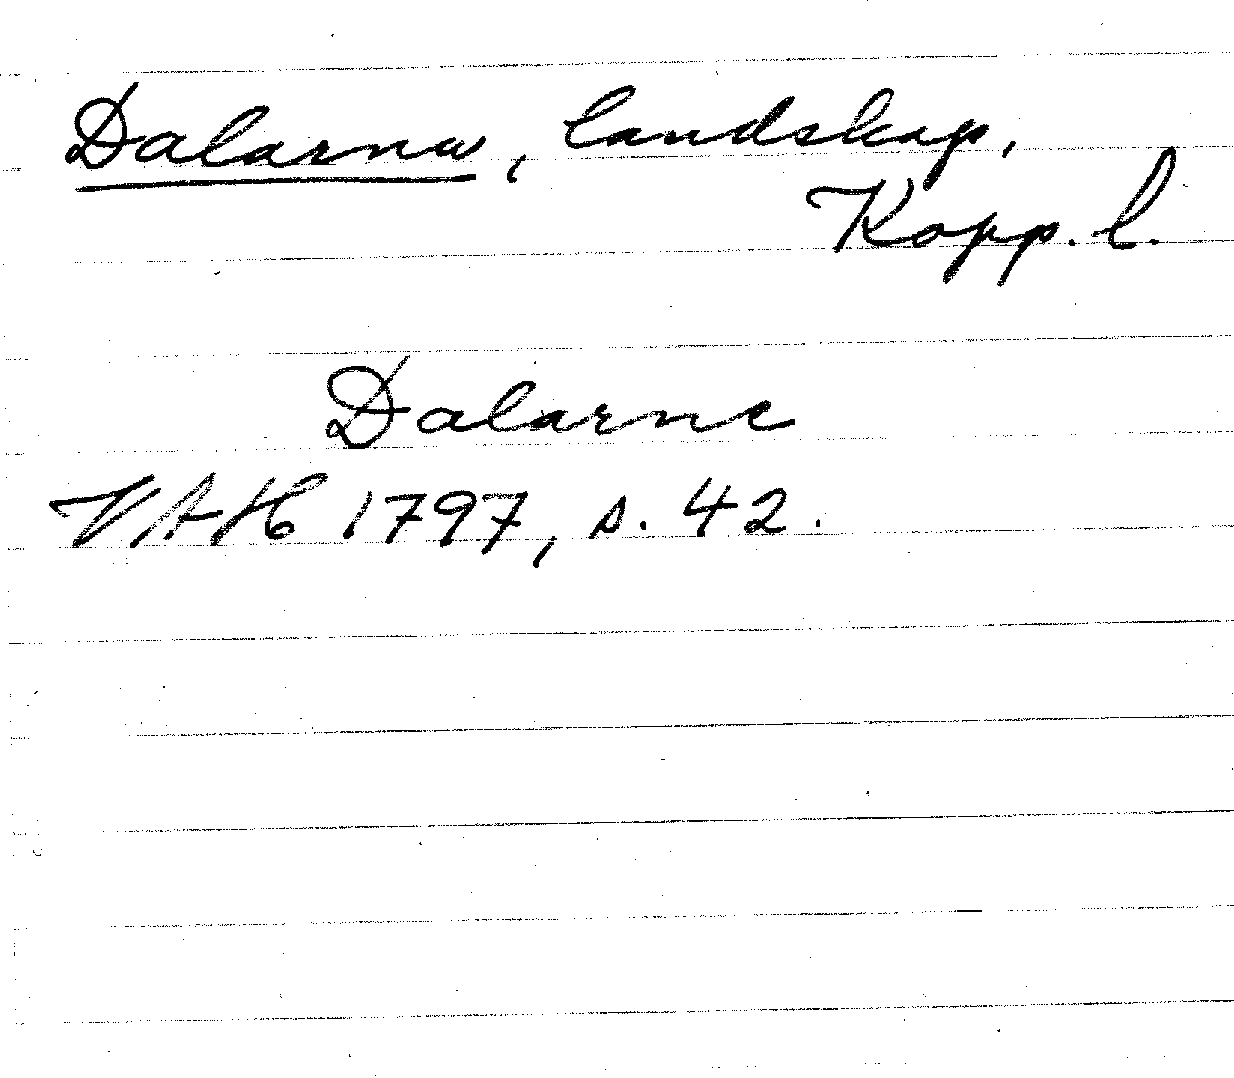 Dalarna, landskap,
Kopp. l.
Dalarne
VAH 1797, s. 42.